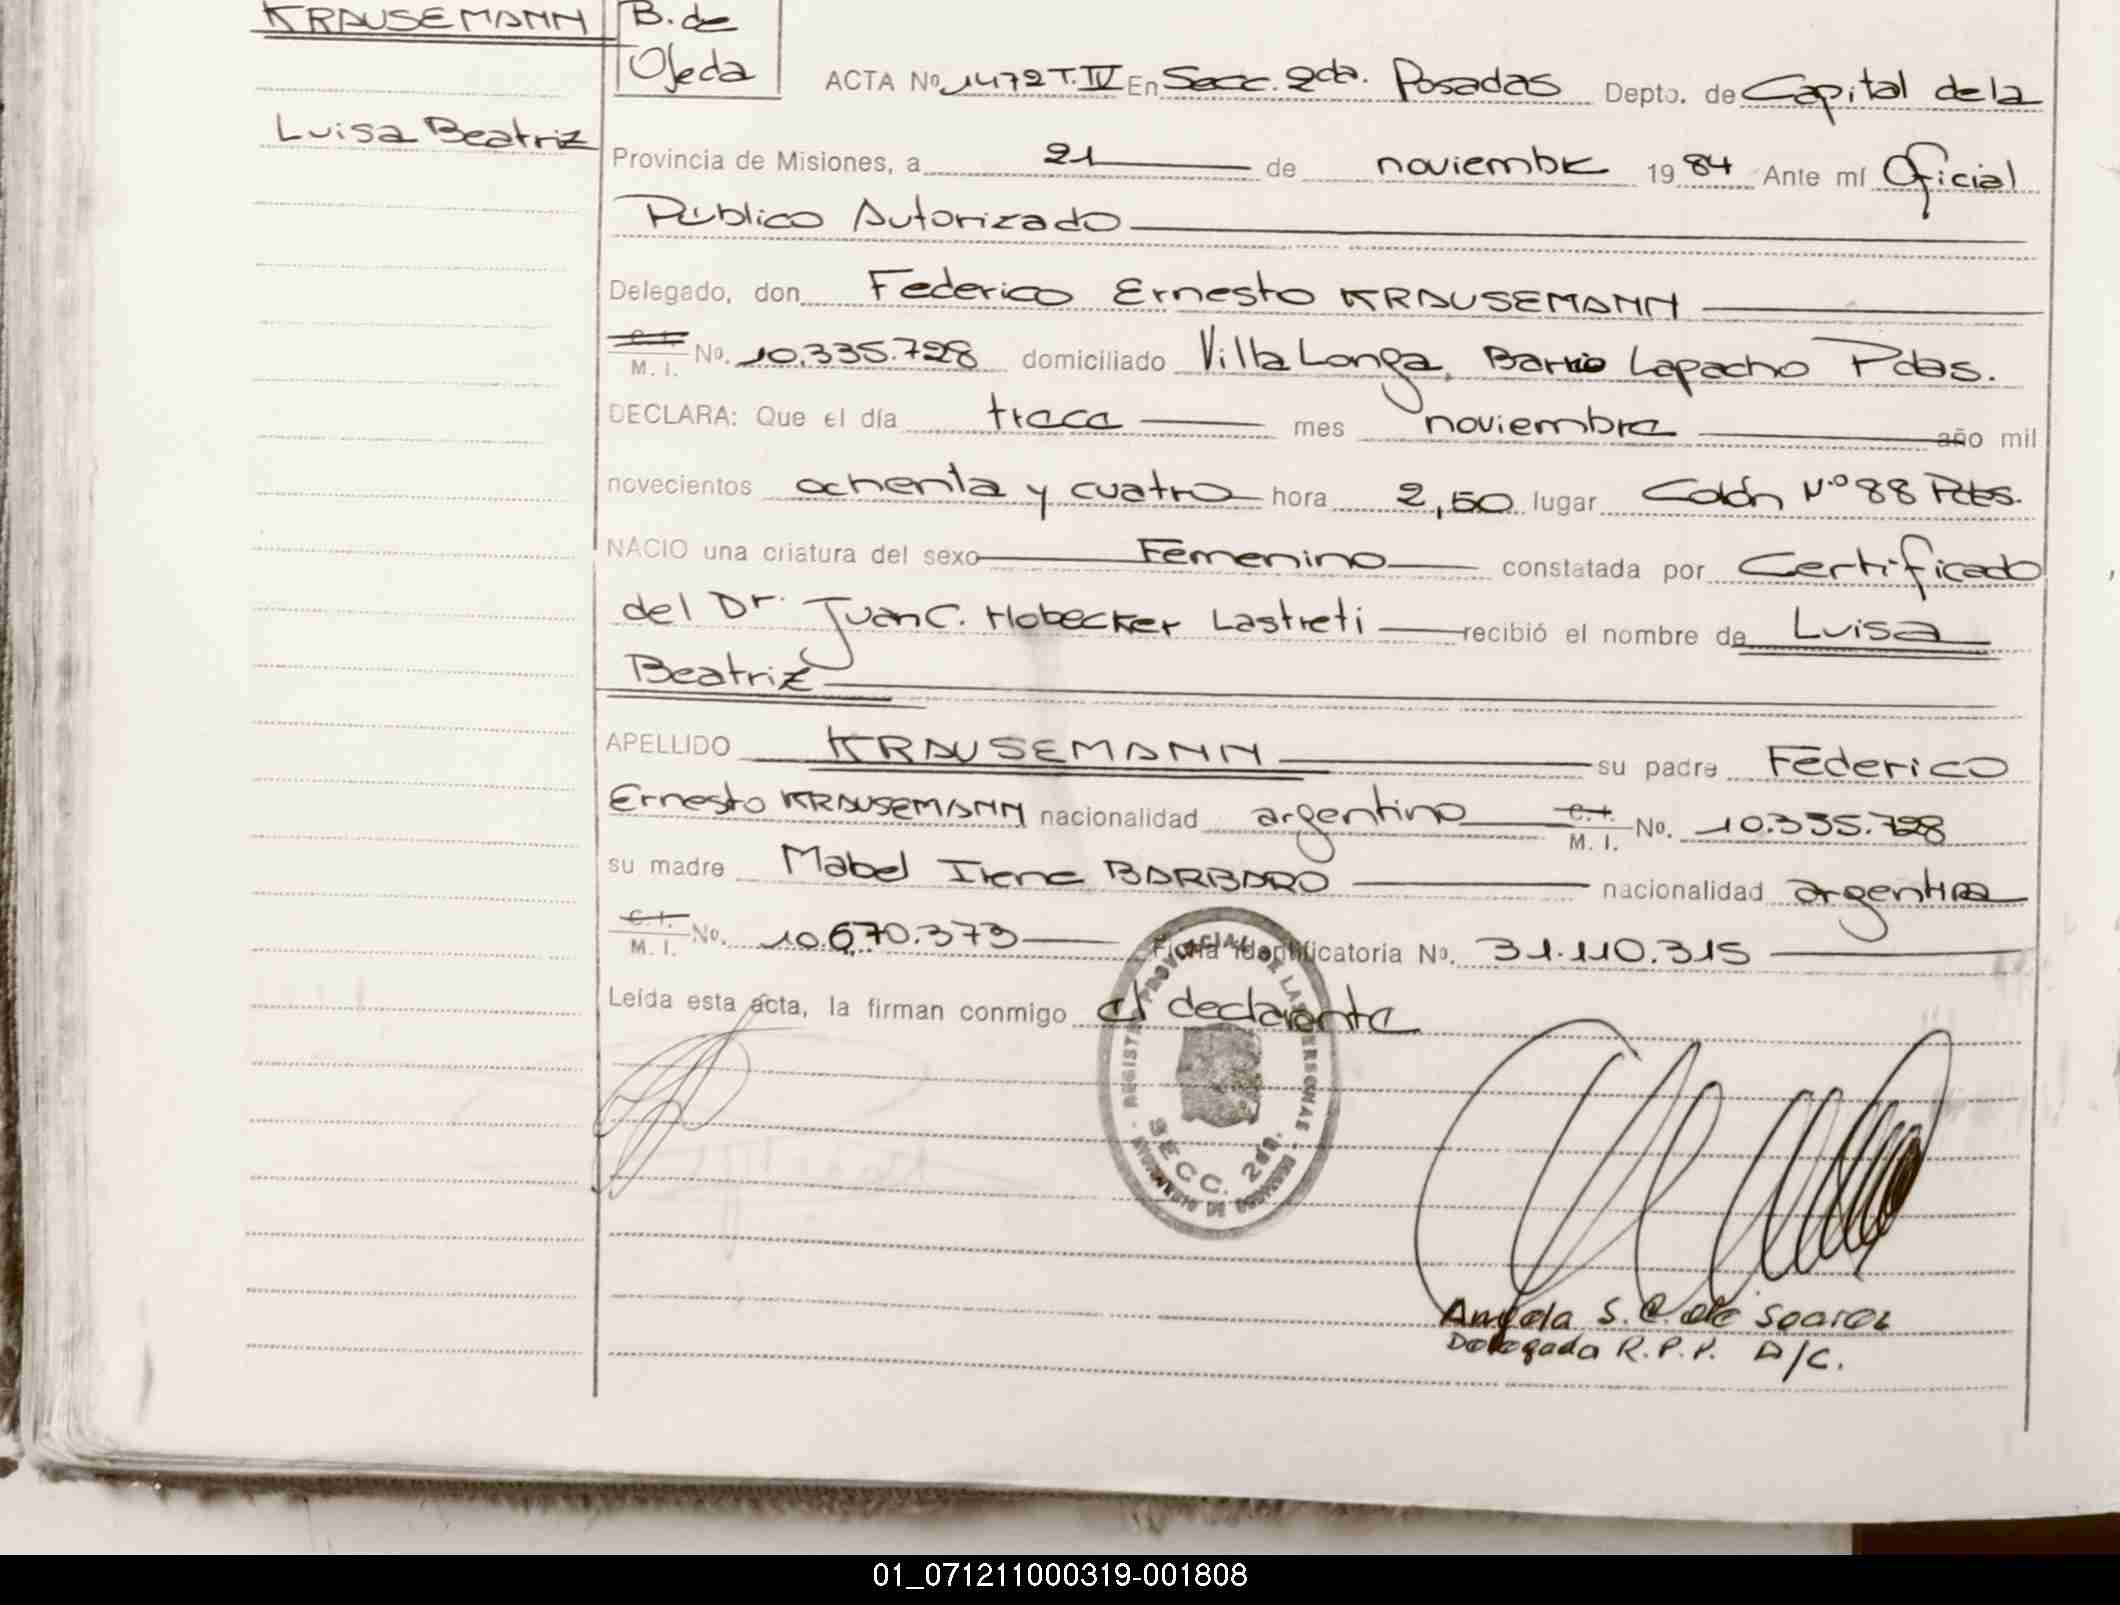 KRAUSEMANN
Luisa Beatriz
B. de
Ojeda
ACTA No. 1472 T. IV En Secc. 2da. Posadas Depto. de Capital de la
Provincia de Misiones, a 21 de noviembre 1984 Ante mí Oficial
Público Autorizado
Delegado, don Federico Ernesto KRAUSEMANN
C. I.
M. I. No. 10.335.728 domiciliado Villa Longa, Barrio Lapacho Pdas.
DECLARA: Que el día trece mes noviembre año mil
novecientos ochenta y cuatro hora 2,50 lugar Colón Nº 88 Pdas.
NACIO una criatura del sexo Femenino constatada por Certificado
del Dr. Juan C. Hobecker Lastreti recibió el nombre de Luisa
Beatriz
APELLIDO KRAUSEMANN su padre Federico
Ernesto KRAUSEMANN nacionalidad argentino C. I. M. I. No. 10.335.728
su madre Mabel Irene BARBARO nacionalidad argentina
C. I.
M. I. No. 10.670.373 Ficha identificatoria No. 31.110.315
Leída esta acta, la firman conmigo el declarante
REGISTRO PROVINCIAL DE LAS PERSONAS
SECC. 2da.
Angela S. C. de Soarez
Delegada R.P.P. A/C.
01_071211000319-001808